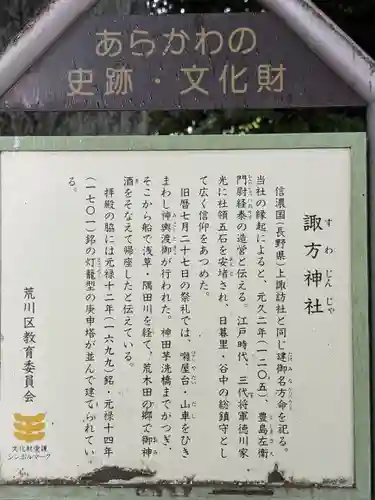 あらかわの
史跡・文化財
諏方神社
すわじんじゃ
信濃国(長野県)上諏訪社と同じ建御名方命を祀る。
当社の縁起によると、元久二年(一二〇五)、豊島左衛
門尉経泰の造営と伝える。江戸時代、三代将軍徳川家
光に社領五石を安堵され、日暮里・谷中の総鎮守とし
て広く信仰をあつめた。
旧暦七月二十七日の祭礼では、囃屋台・山車をひき
まわし神輿渡御が行われた。神田芋洗橋までかつぎ、
そこから船で浅草・隅田川を経て、荒木田の郷で御神
酒をそなえて帰座したと伝えている。
拝殿の脇には元禄十二年(一六九九)銘・元禄十四年
(一七〇一)銘の灯籠型の庚申塔が並んで建てられてい
る。
荒川区教育委員会
文化財愛護
シンボルマーク